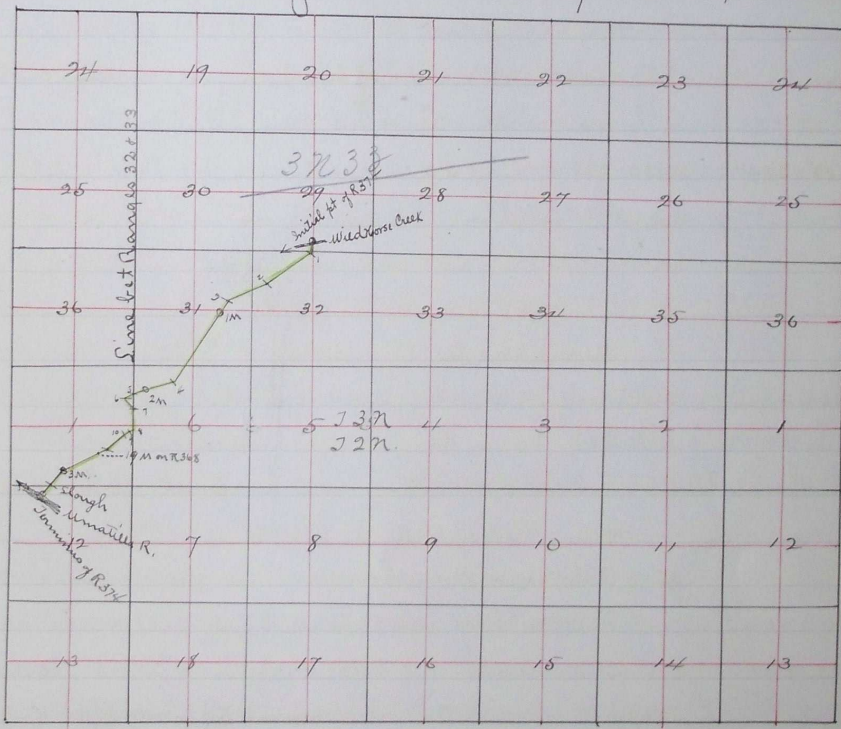 24 19 20 21 22 23 24
Line bet Ranges 32 & 33
3N 33
25 30 29 28 27 26 25
Initial pt of R374
Wildhorse Creek
1
2
3
1M
36 31 32 33 34 35 36
2M
5
6
7
1 6 5 T3N 4 3 2 1
T2N.
10 9
19 M on R368
3M.
Slough
Umatilla R.
Terminus of R374
12 7 8 9 10 11 12
13 18 17 16 15 14 13